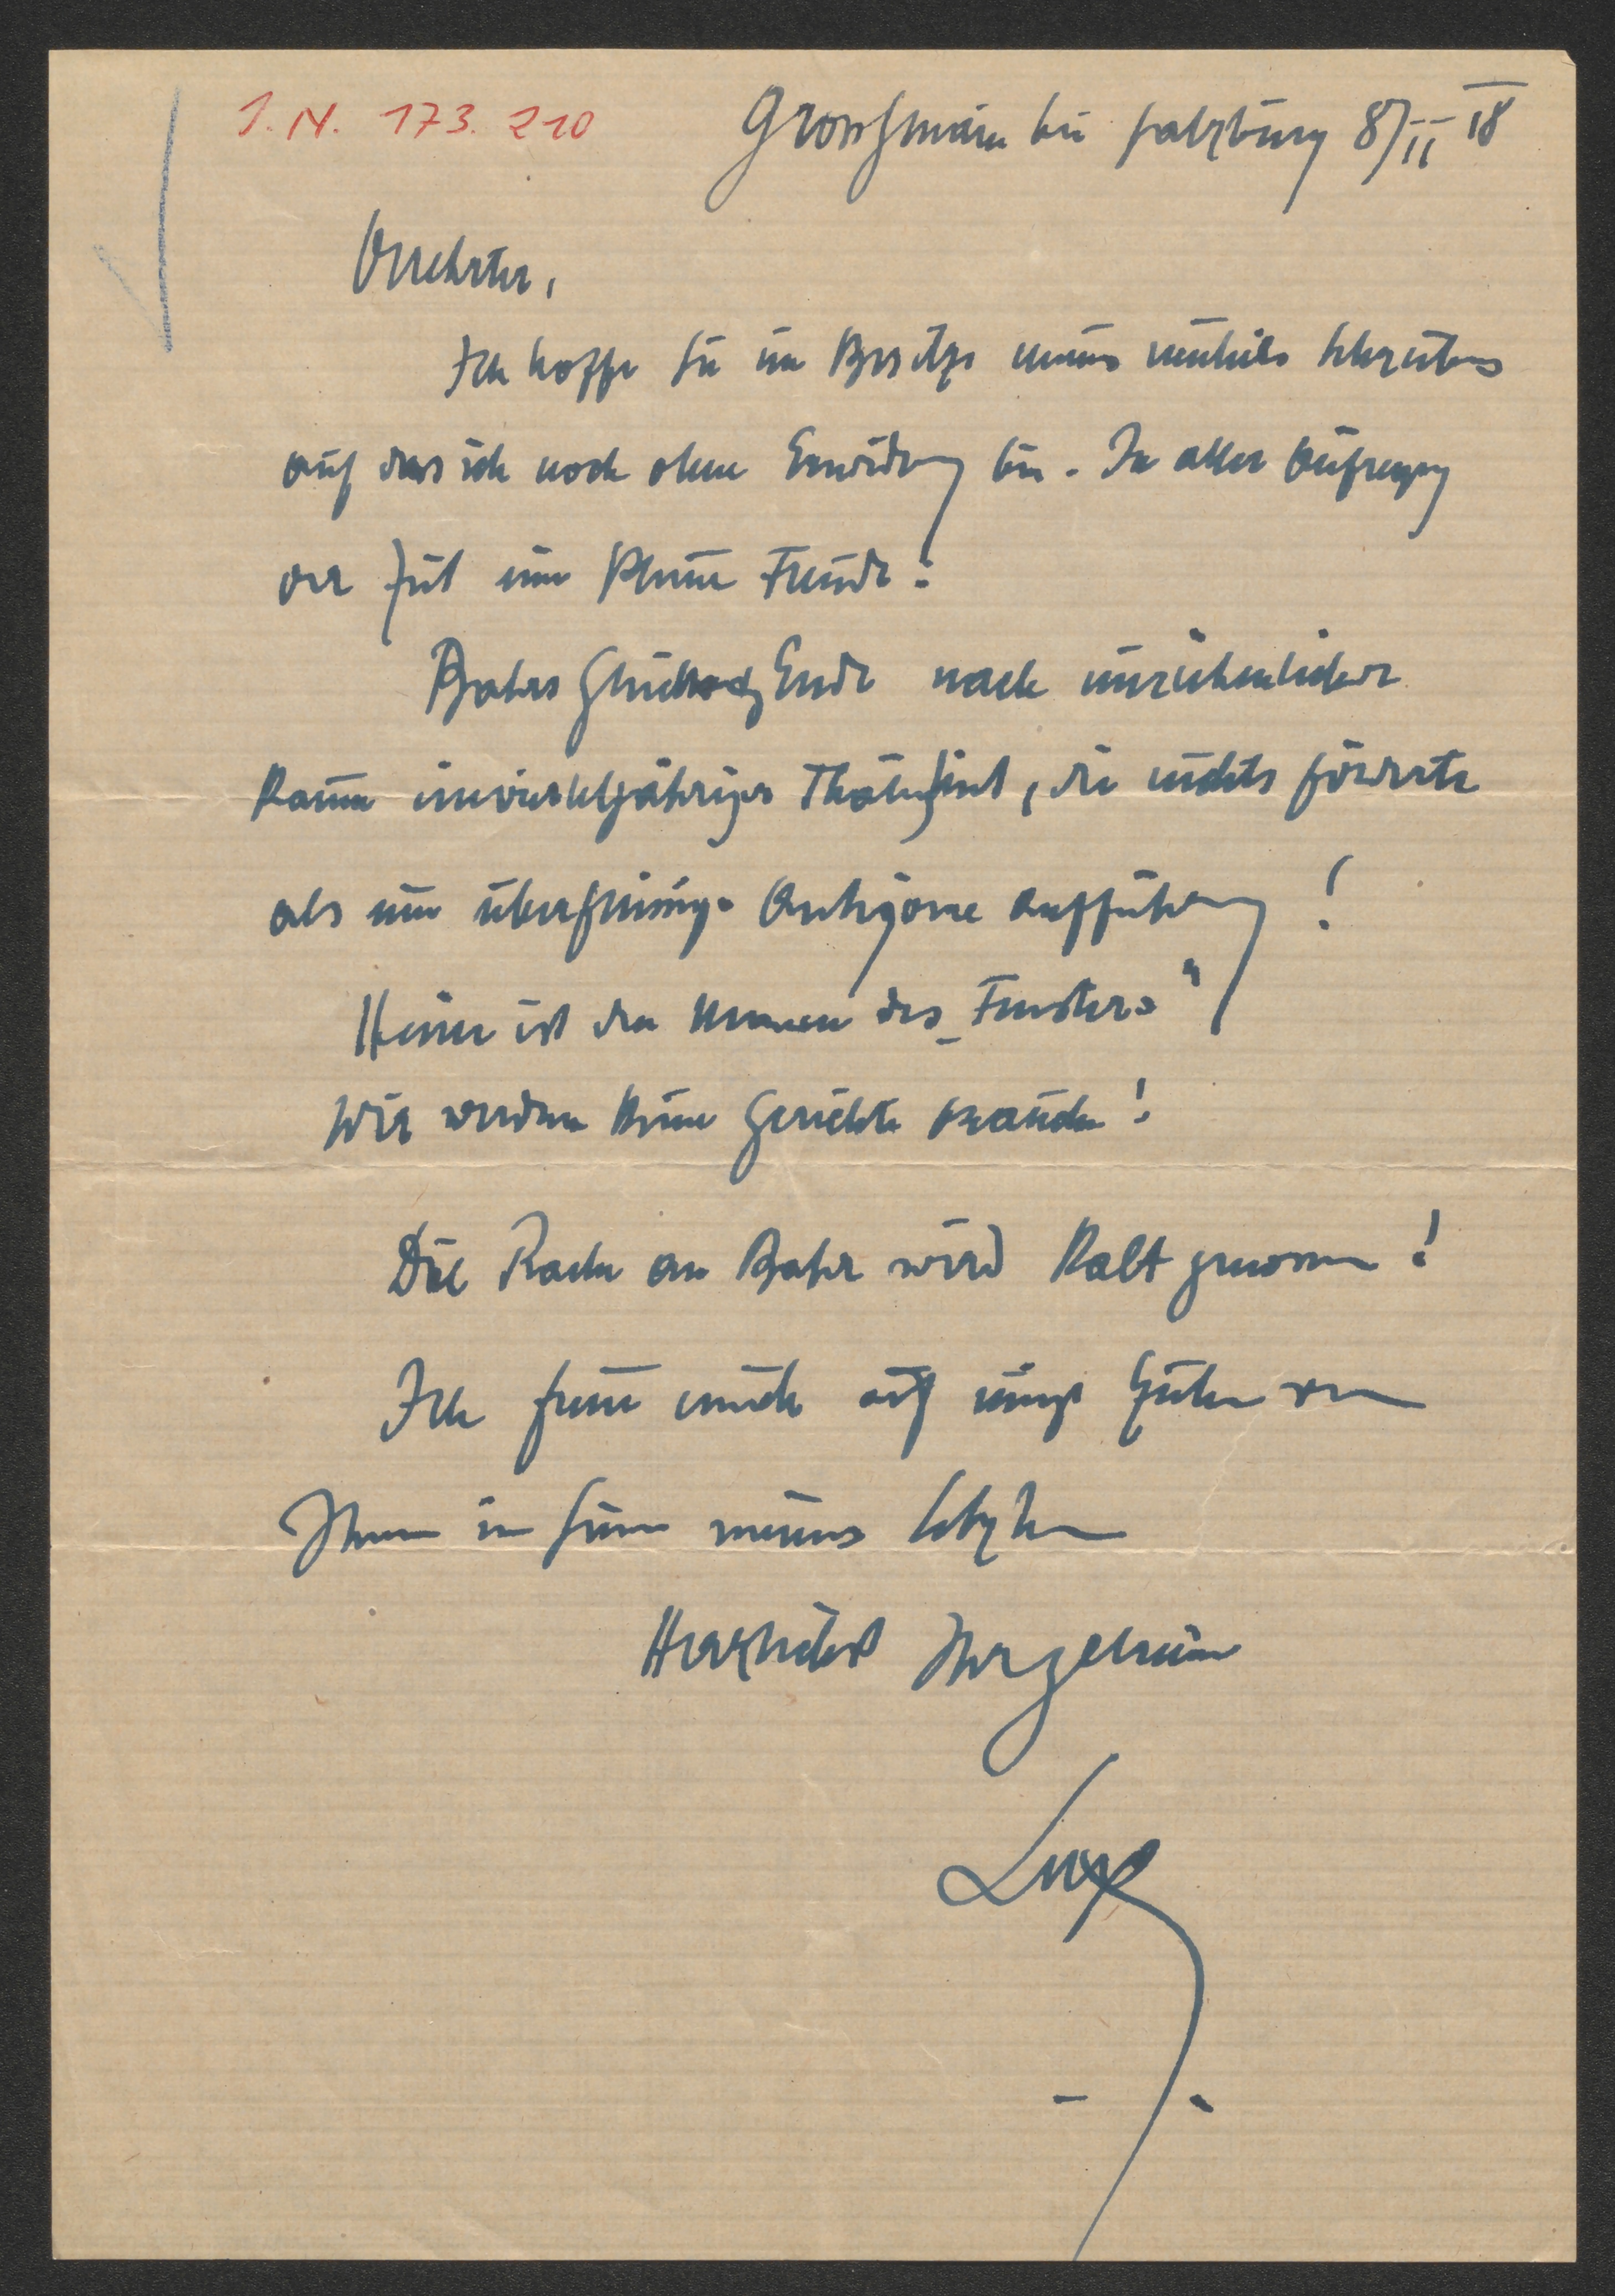 I. N. 173.210
Grossgmain bei Salzburg 8/II 18
Verehrter,
Ich hoffe Sie im Besitze meines Schreibens
auf das ich noch ohne Erwiderung bin. In aller Aufregung
der Zeit eine kleine Freude:
Bahrs Ende nach unrühmlicher
kaum einvierteljähriger Thätigkeit, die nichts förderte
als eine Antigone Aufführung!
ist der des „Fensters“
Wir werden keine Gerichte brauchen!
Die Rache an Bahr wird kalt genommen!
Ich freue mich auf einige Zeilen von
Ihnen im Sinne meines letzten
Herzlichst Ihr
Lux